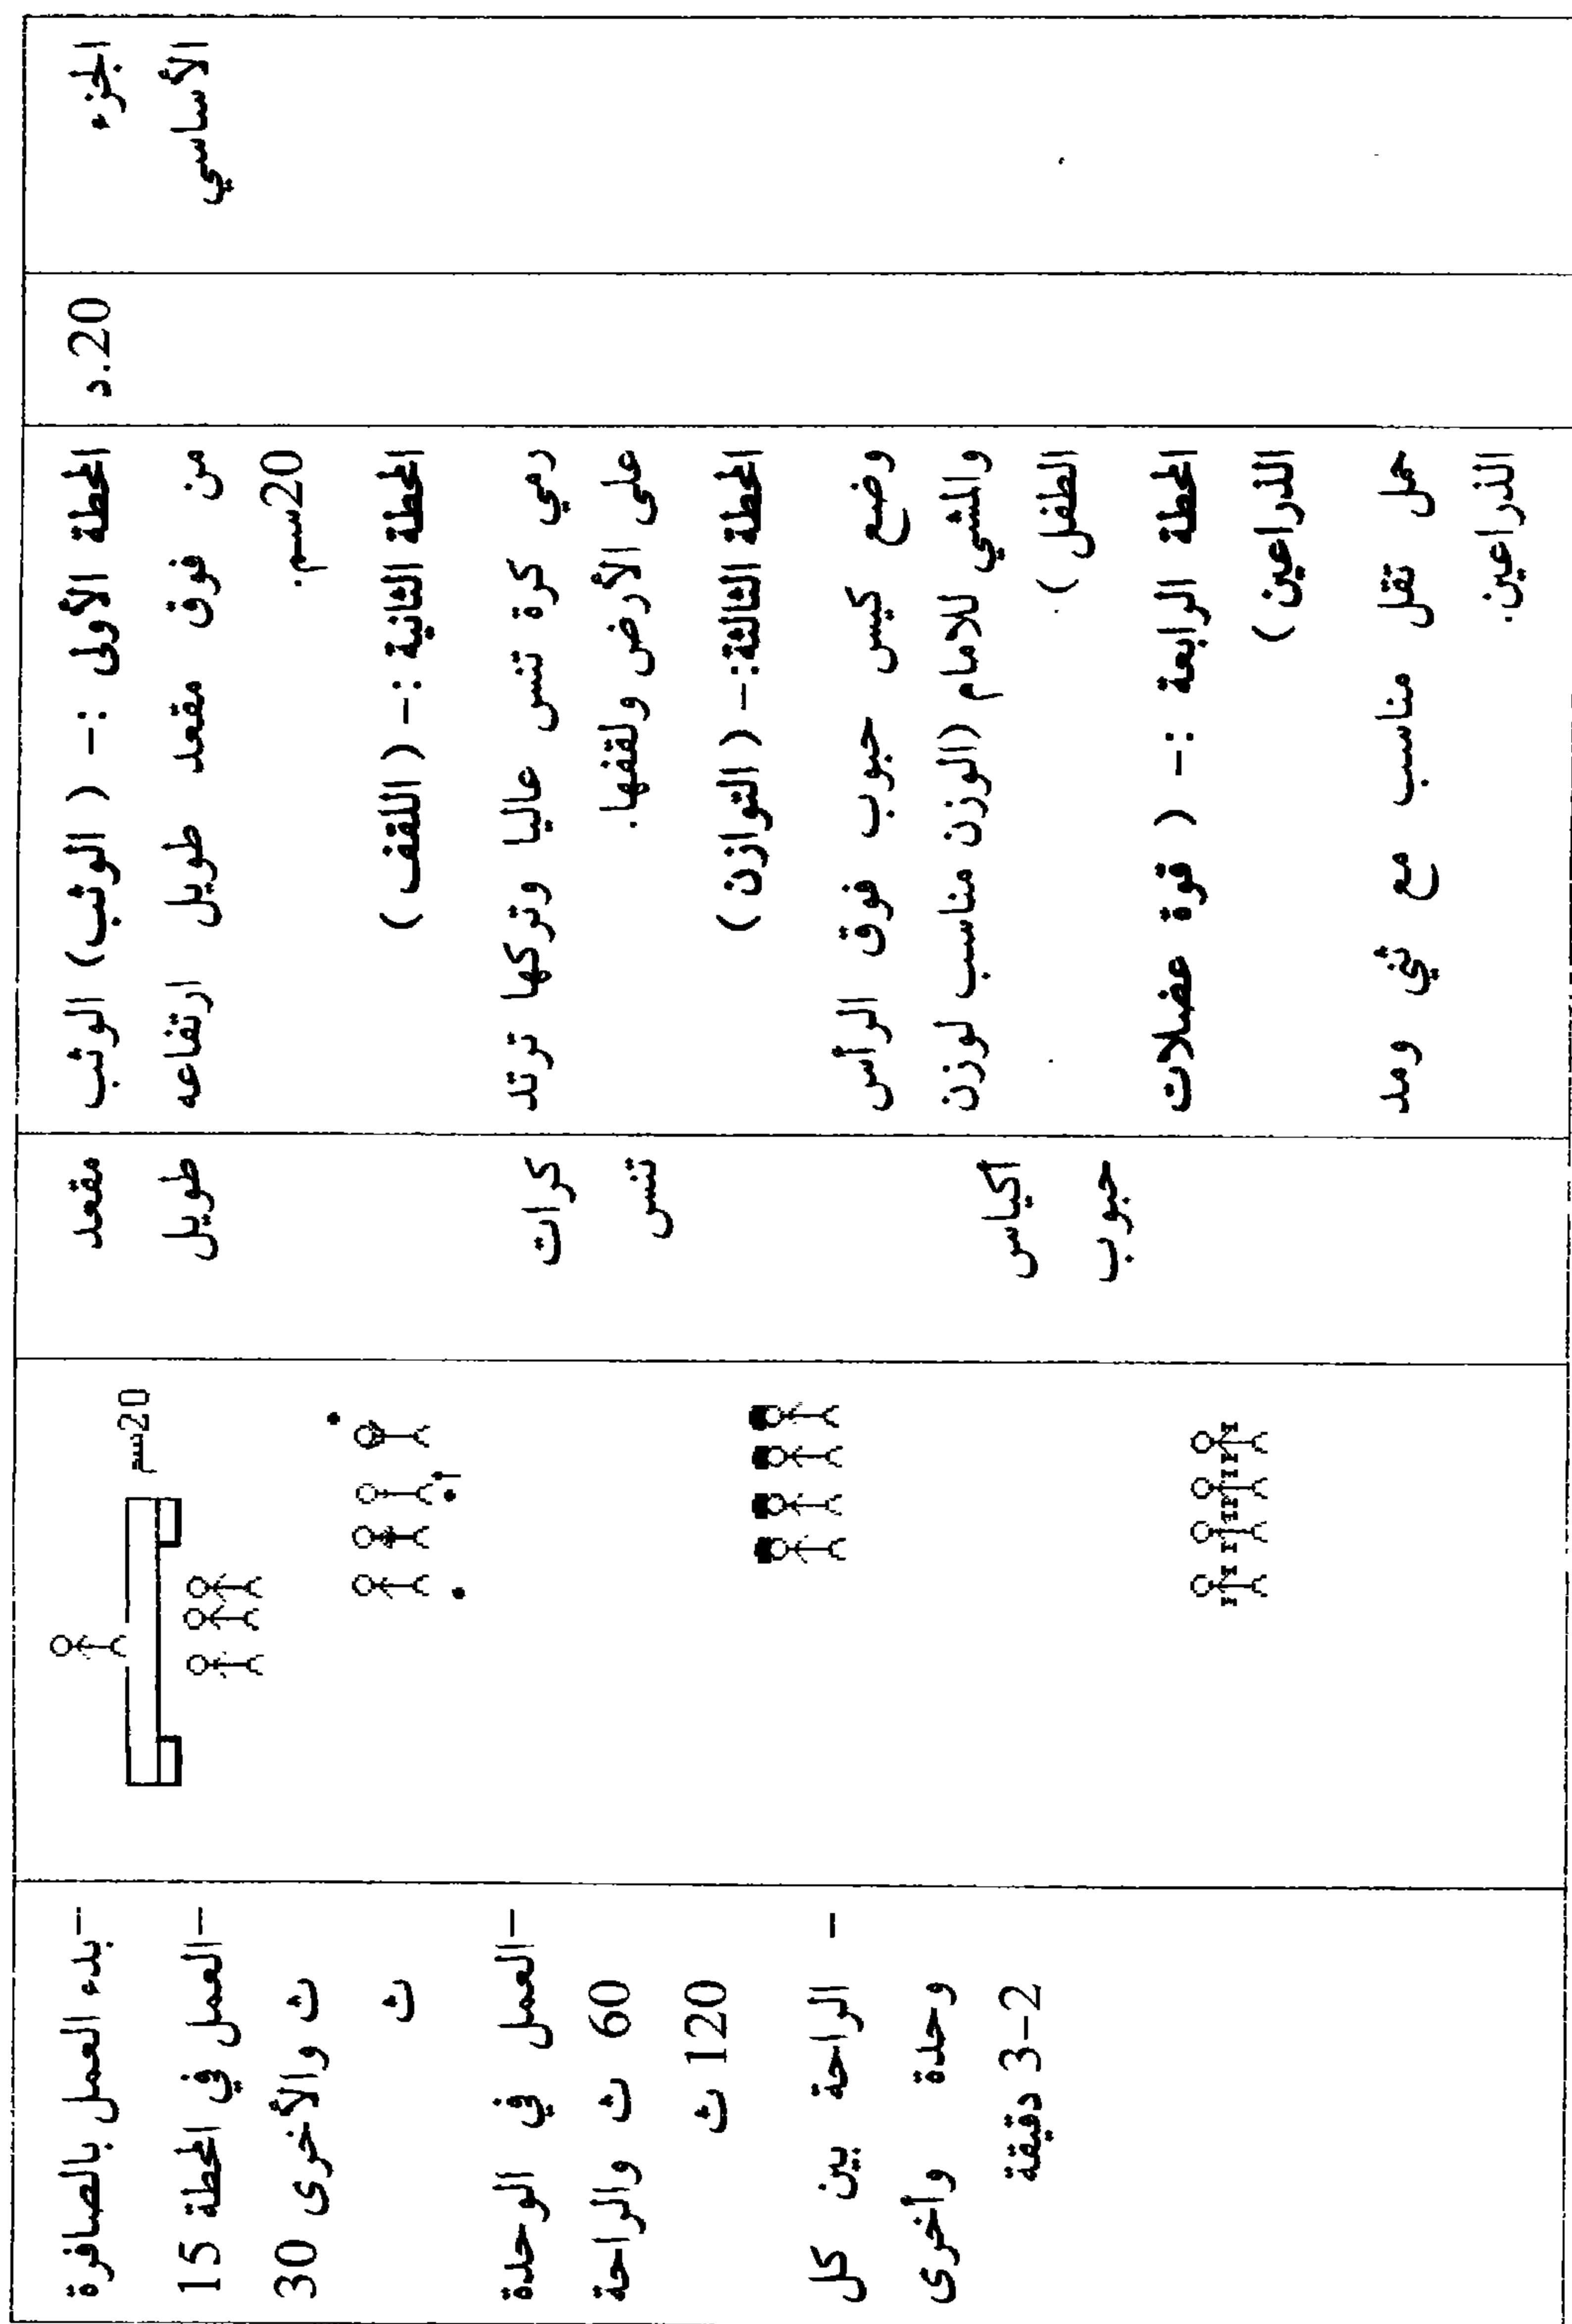 الجزء
الأساسي
20.د
المحطة الأولى :– ( الوثب) الوثب
من فوق مقعد طويل ارتفاعه
20سم.
المحطة الثانية :– ( اللقف )
رمي كرة تنس عاليا وتركها ترتد
على الأرض ولقفها.
المحطة الثالثة:– ( التوازن )
وضع كيس حبوب فوق الرأس
والمشي للامام (الوزن مناسب لوزن
الطفل ).
المحطة الرابعة :– ( قوة عضلات
الذراعين )
حمل ثقل مناسب مع ثني ومد
الذراعين.
مقعد
طويل
كرات
تنس
أكياس
حبوب
20سم
–بدء العمل بالصافرة
–العمل في المحطة 15
ث والأخرى 30
ث
–العمل في الوحدة
60 ث والراحة
120 ث
– الراحة بين كل
وحدة وأخرى
2–3 دقيقة